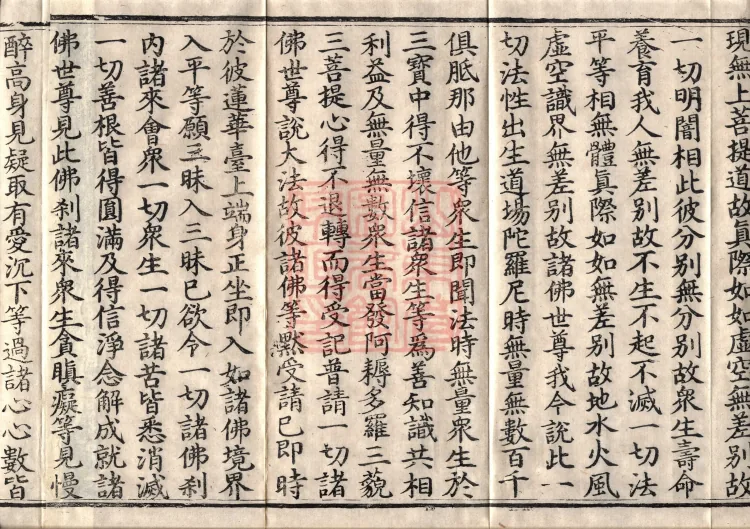 現無上菩提道故眞際如如虛空無差別故
一切明闇相此彼分別無分別故衆生壽命
養育我人無差別故不生不起不滅一切法
平等相無體眞際如如無差別故地水火風
虛空識界無差別故諸佛世尊我今說此一
切法性出生道場陀羅尼時無量無數百千
俱胝那由他等衆生即聞法時無量衆生於
三寶中得不壞信諸衆生等爲善知識共相
利益及無量無數衆生當發阿耨多羅三藐
三菩提心得不退轉而得受記普請一切諸
佛世尊說大法故彼諸佛等黙受請已即時
於彼蓮華臺上端身正坐即入如諸佛境界
入平等願三昧入三昧已欲令一切諸佛刹
內諸來會衆一切衆生一切諸苦皆悉消滅
一切善根皆得圓滿及得信淨念解成就諸
佛世尊見此佛刹諸來衆生貪瞋癡等見慢
醉高身見疑取有愛沉下等過諸心心數皆